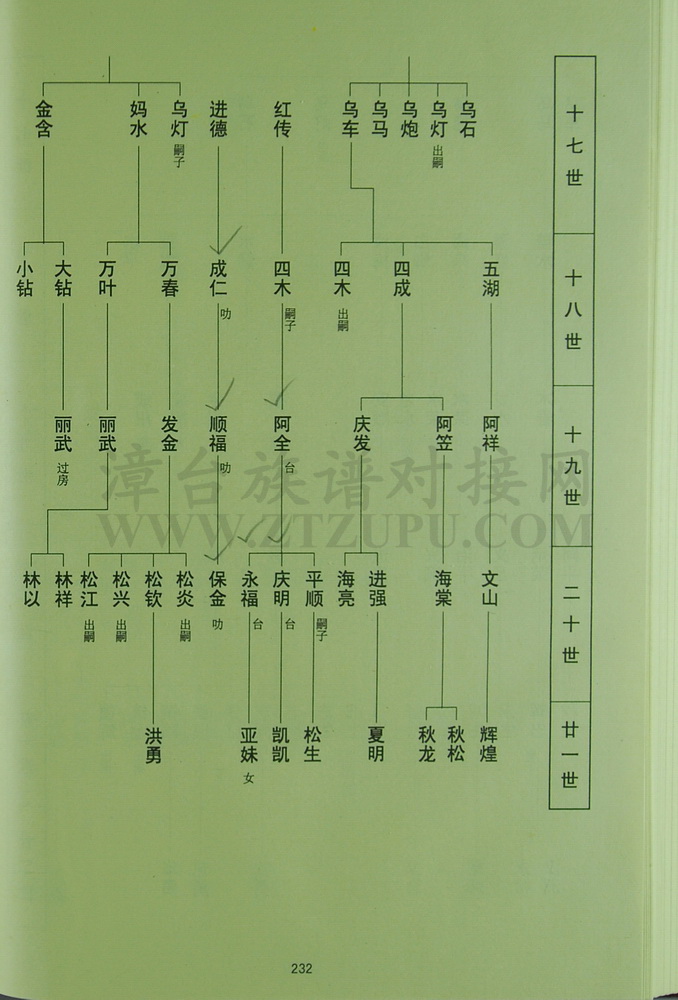 十七世
乌石
乌灯 出嗣
乌炮
乌马
乌车
红传
进德
乌灯 嗣子
妈水
金含
十八世
五湖
四成
四木 出嗣
四木 嗣子
成仁 叻
万春
万叶
大钻
小钻
十九世
阿祥
阿笠
庆发
阿全 台
顺福 叻
发金
丽武
丽武 过房
二十世
文山
海棠
进强
海亮
平顺 嗣子
庆明 台
永福 台
保金 叻
松炎 出嗣
松钦
松兴 出嗣
松江 出嗣
林祥
林以
廿一世
辉煌
秋松
秋龙
夏明
松生
凯凯
亚妹 女
洪勇
漳台族谱对接网
WWW.ZTZUPU.COM
232